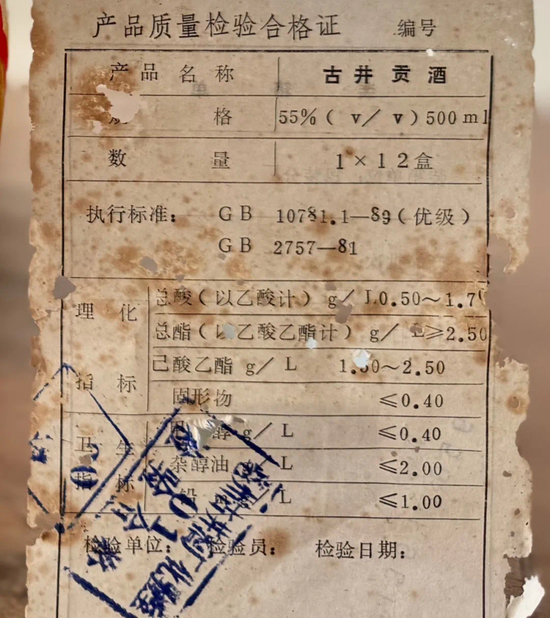 产品质量检验合格证 编号
产品名称 古井贡酒
格 55%( v/ v)500ml
数量 1×12盒
执行标准: GB 10781.1—89(优级)
GB 2757—81
理化指标
总酸(以乙酸计) g/L0.50~1.7
总酯(以乙酸乙酯计) g/L≥2.50
己酸乙酯 g/L 1. 0~2.50
固形物 ≤0.40
卫生指标
醇 g/L ≤0.40
杂醇油 L ≤2.00
铅 L ≤1.00
检验单位: 检验员: 检验日期:
检验
01